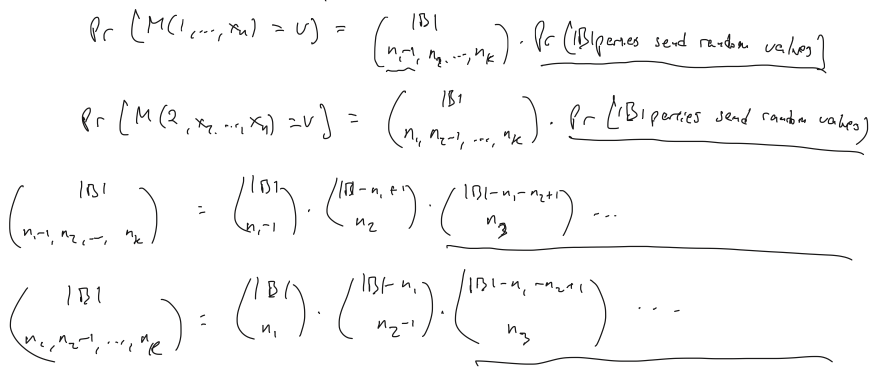 Pr [M(1,...,xₙ) = v] = (|B| n₁-1, n₂...,nₖ) · Pr [|B| parties send random values]
Pr [M(2,x₂...,xₙ) = v] = (|B| n₁, n₂-1, ..., nₖ) · Pr [|B| parties send random values]
(|B| n₁-1, n₂,..., nₖ) = (|B| n₁-1) · (|B|-n₁+1 n₂) · (|B|-n₁-n₂+1 n₃) ...
(|B| n₁, n₂-1, ..., nₖ) = (|B| n₁) · (|B|-n₁ n₂-1) · (|B|-n₁-n₂+1 n₃) ....